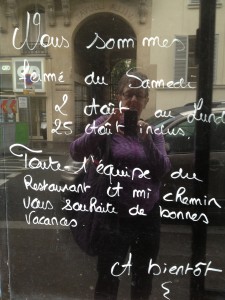 Nous sommes
fermé du Samedi
2 Août au Lund
25 Août inclus.
Toute l'équipe du
Restaurant et mi chemin
vous souhaite de bonnes
vacances.
A bientôt